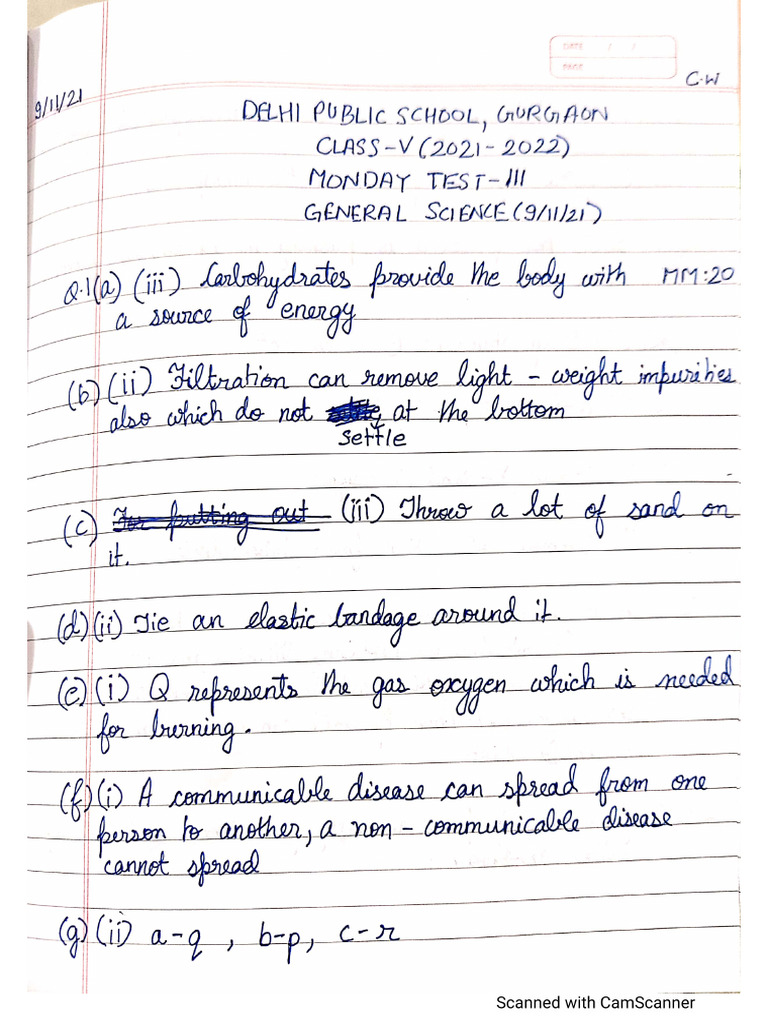 DATE / /
PAGE
C.W
9/11/21
DELHI PUBLIC SCHOOL, GURGAON
CLASS-V (2021-2022)
MONDAY TEST-III
GENERAL SCIENCE (9/11/21)
Q.1(a) (iii) Carbohydrates provide the body with MM:20
a source of energy
(b) (ii) Filtration can remove light-weight impurities
also which do not at the bottom
settle
(c) For putting out (iii) Throw a lot of sand on
it.
(d) (ii) Tie an elastic bandage around it.
(e) (i) Q represents the gas oxygen which is needed
for burning.
(f) (i) A communicable disease can spread from one
person to another, a non-communicable disease
cannot spread
(g) (ii) a-q, b-p, c-r
Scanned with CamScanner